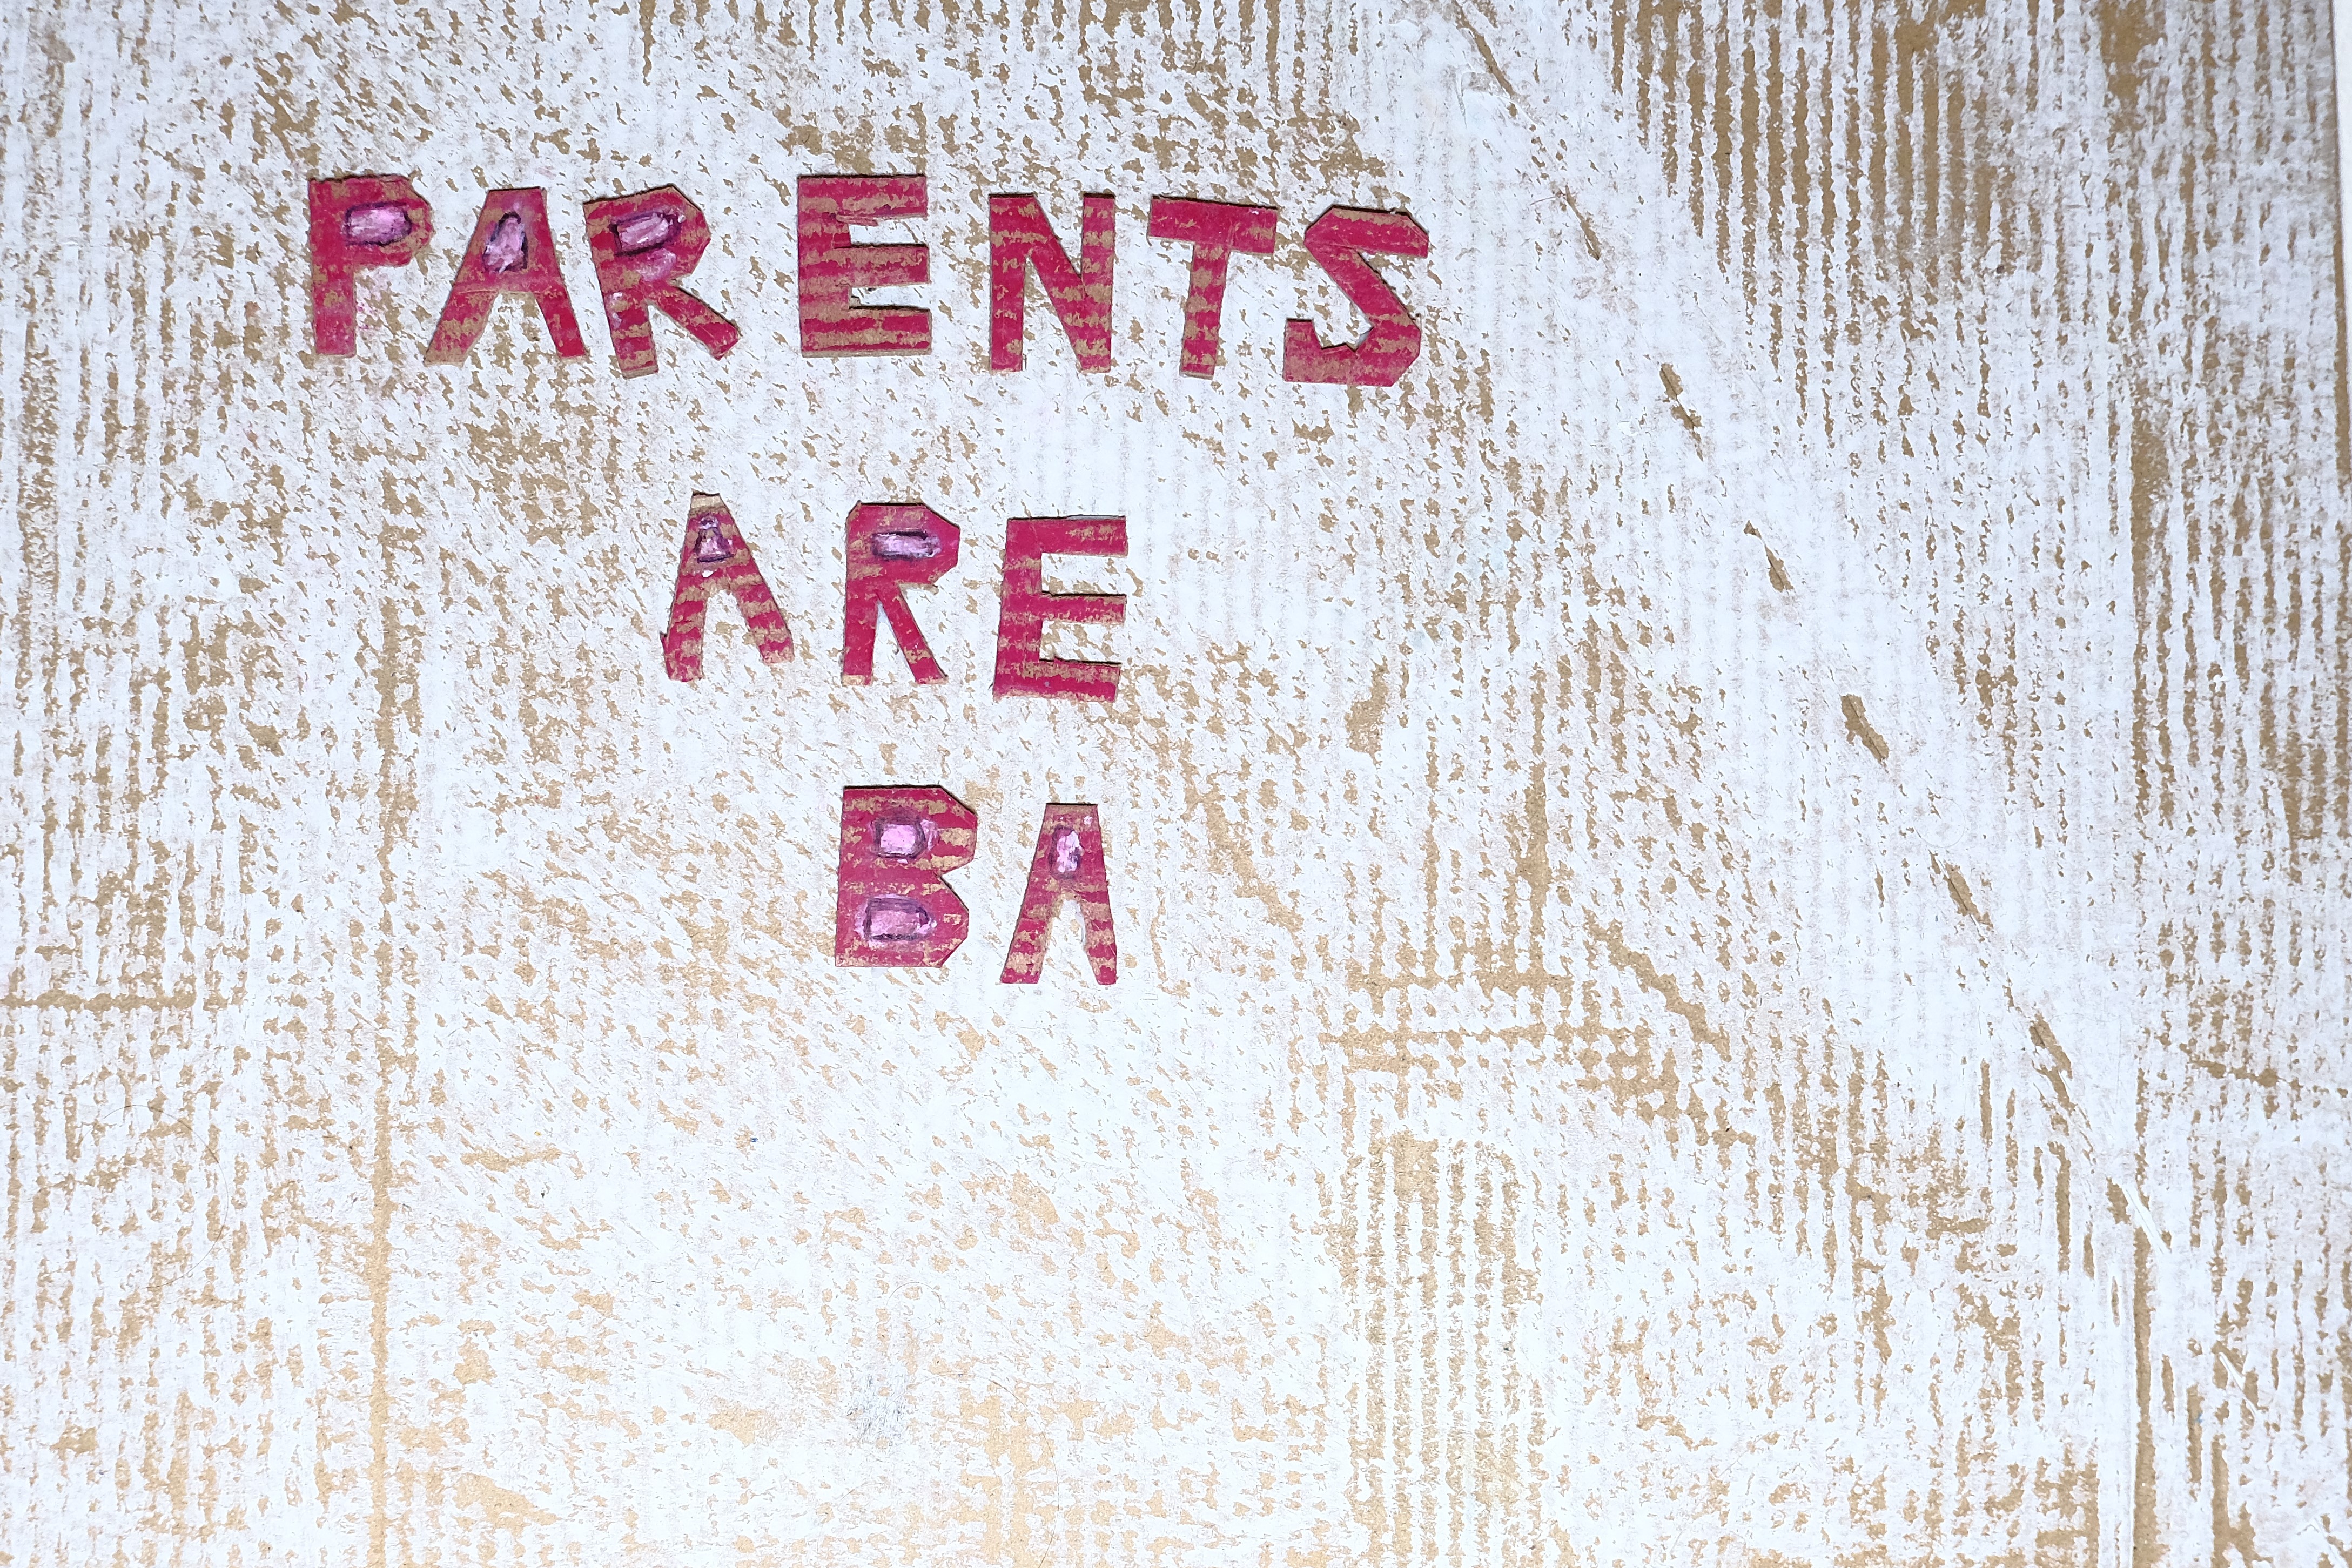 PARENTS
ARE
BA